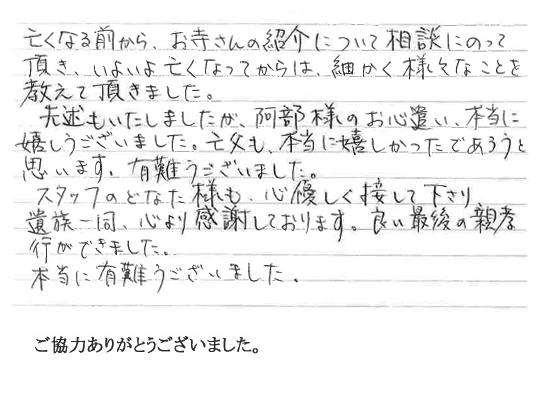 亡くなる前から、お寺さんの紹介について相談にのって
頂き、いよいよ亡くなってからは、細かく様々なことを
教えて頂きました。
先述もいたしましたが、阿部様のお心遣い、本当に
嬉しうございました。亡父も、本当に嬉しかったであろうと
思います。有難うございました。
スタッフのどなた様も、心優しく接して下さり
遺族一同、心より感謝しております。良い最後の親孝
行ができました。
本当に有難うございました。
ご協力ありがとうございました。